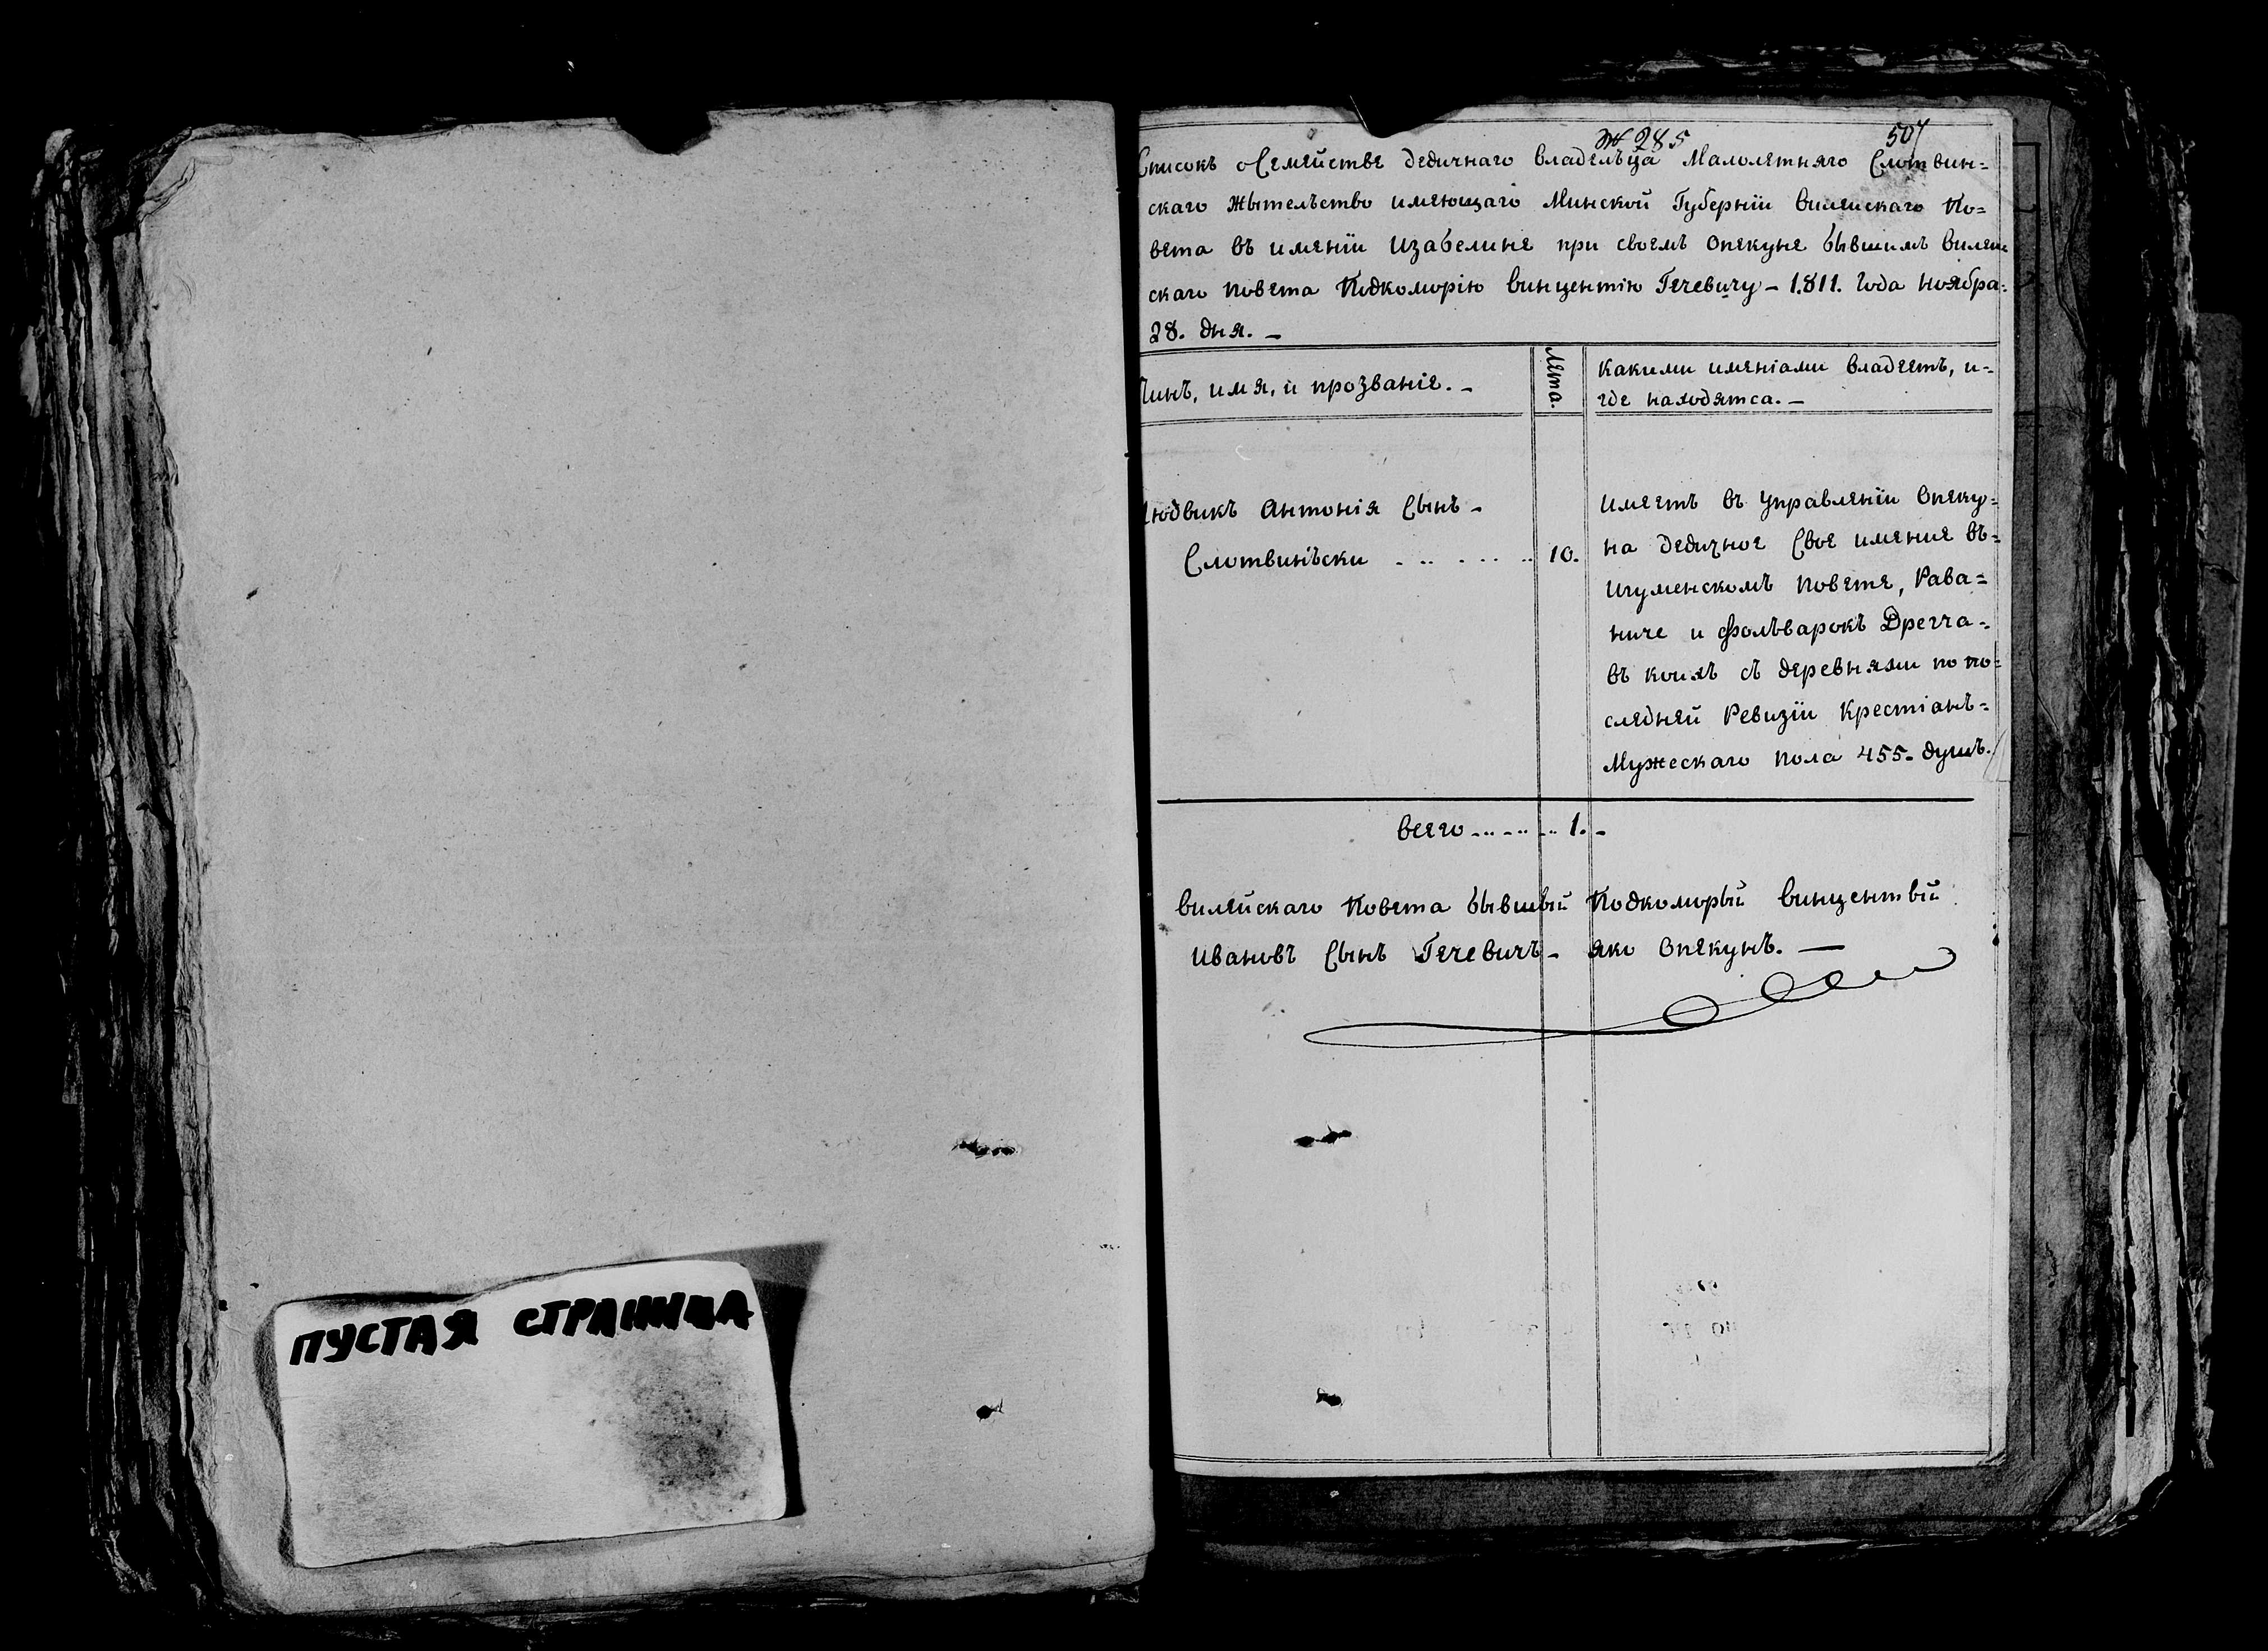 ПУСТАЯ СТРАНИЦА
№ 285
507
Списокъ о Семействе дедичнаго владельца Малолетняго Слотвин=
скаго Жытельство имеющаго Минской Губернїи Вилейскаго По=
вета въ именїи Изабелине при своемъ Опекуне бывшимъ Вилей
скаго Повета Подкоморїю Винцентїю Гечевичу – 1811. Года Ноября=
28. дня. –
Чинъ, имя, и прозванїе. –
Лета.
Какими именїами владеетъ, и=
где находятса. –
Людвикъ Антонія Сынъ –
Слотвинъски . .. . .. . .. 10.
Имеетъ въ управленїи Опеку=
на дедичное Свое имение въ=
Игуменскомъ Повете, Рава=
ниче и фольварокъ Дрегча=
въ коихъ съ деревнями по по=
следней Ревизїи Крестіанъ=
Мужескаго пола 455. душъ.
Всего . .. . .. . .. 1. –
Вилейскаго Повета бывшый Подкоморый Винцентый
Ивановъ Сынъ Гечевичъ – яко Опекунъ. —